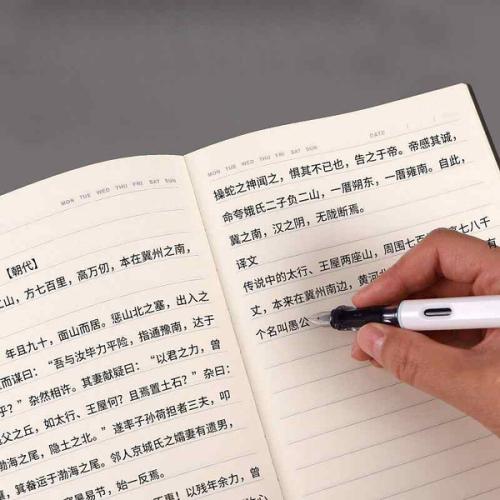 MON TUE WED THU FRI SAT SUN
【朝代】
之山，方七百里，高万仞，本在冀州之南，
年且九十，面山而居。惩山北之塞，出入之
而谋曰：“吾与汝毕力平险，指通豫南，达于
乎？”杂然相许。其妻献疑曰：“以君之力，曾
父之丘，如太行、王屋何？且焉置土石？”杂曰：
渤海之尾，隐土之北。”遂率子孙荷担者三夫，叩
，箕畚运于渤海之尾。邻人京城氏之孀妻有遗男，
易节，始一反焉。
！以残年余力，曾
MON TUE WED THU FRI SAT SUN
DATE
操蛇之神闻之，惧其不已也，告之于帝。帝感其诚，
命夸娥氏二子负二山，一厝朔东，一厝雍南。自此，
冀之南，汉之阴，无陇断焉。
译文
传说中的太行、王屋两座山，周围七百 高七八千
丈，本来在冀州南边，黄河北 有
个名叫愚公